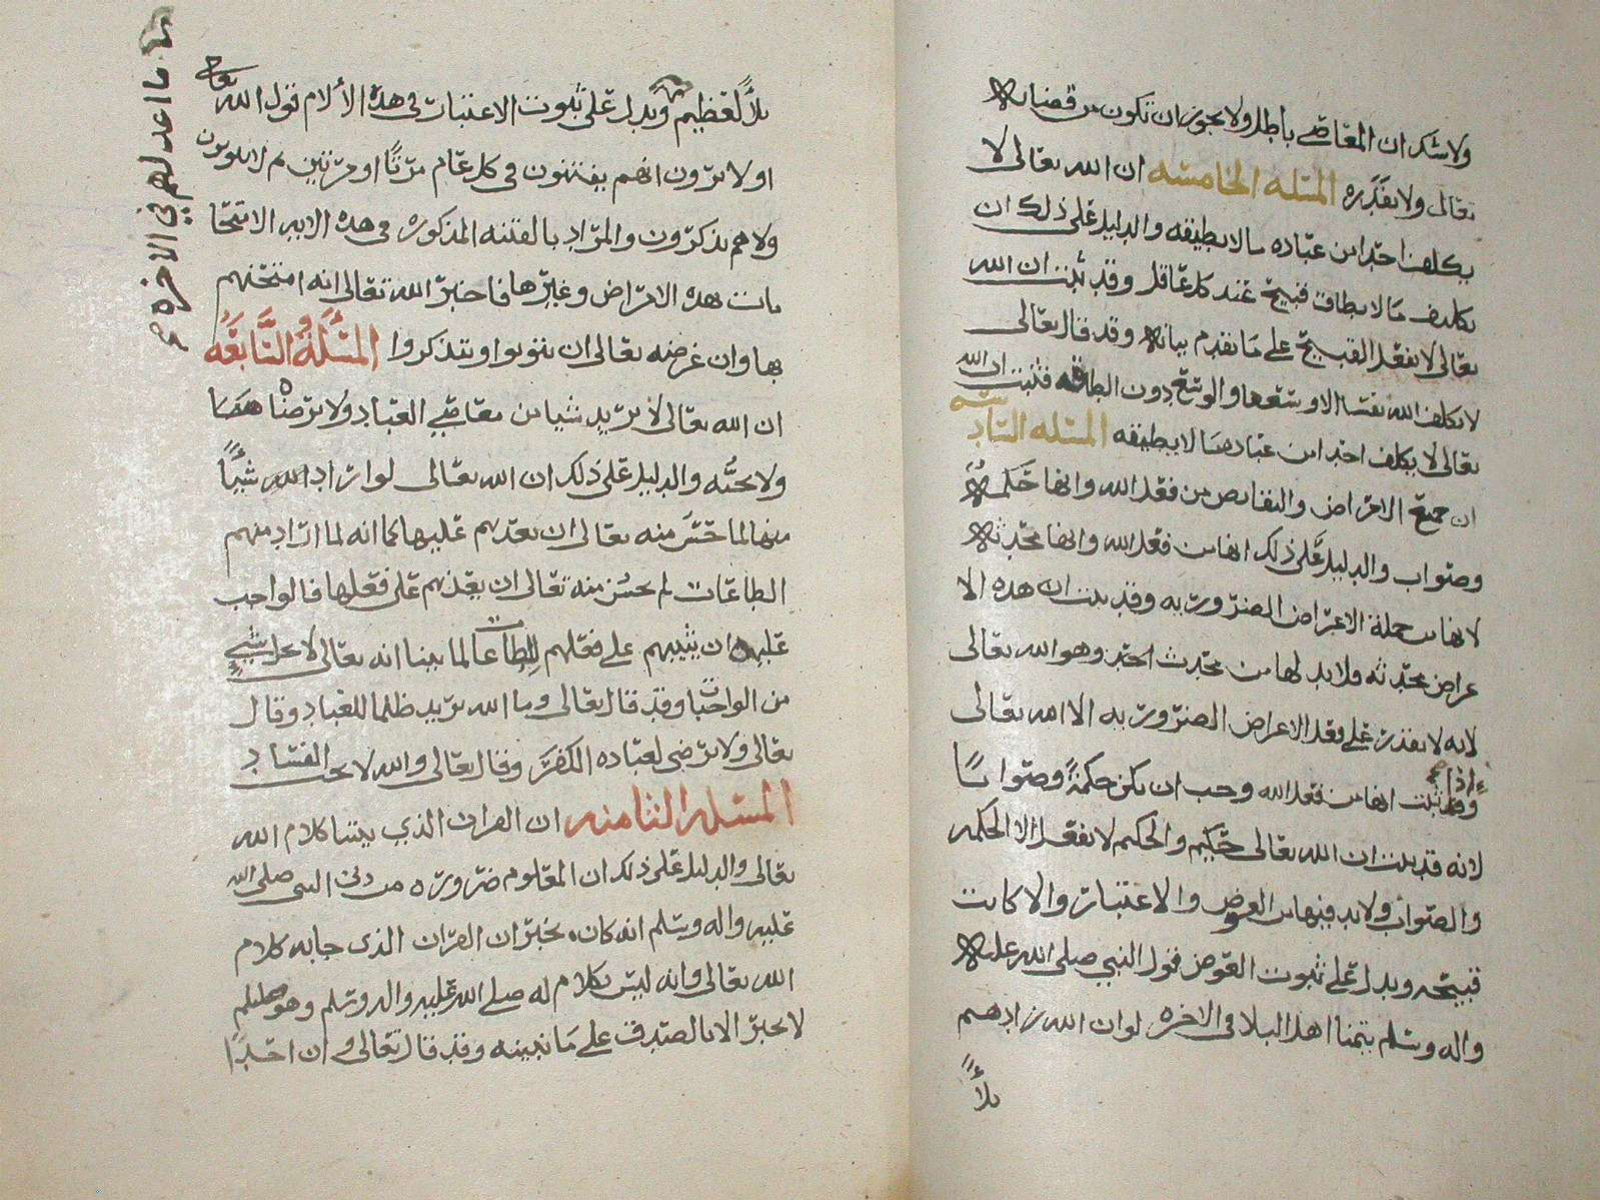 ولا شك ان المعاصي باطل ولا يجوز ان تكون من قضائه
تعالى ولا بقدره المسئله الخامسه ان الله تعالى لا
يكلف احدا من عباده ما لا يطيقه والدليل على ذلك ان
تكليف ما لا يطاق قبيح عند كل عاقل وقد ثبت ان الله
تعالى لا يفعل القبيح على ما تقدم بيانه وقد قال تعالى
لا يكلف الله نفسا الا وسعها والوسع دون الطاقه فثبت ان الله
تعالى لا يكلف احدا من عباده ما لا يطيقه المسئله السادسه
ان جميع الامراض والنقايص من فعل الله وانها حكمه
وصواب والدليل على ذلك انها من فعل الله وانها محدثه
لانها من جملة الاعراض الضروريه وقد ثبت ان هذه الا
عراض محدثه ولا بد لها من محدث احدث وهو الله تعالى
لانه لا يقدر على فعل الاعراض الضروريه الا الله تعالى
واذا ثبت انها من فعل الله وجب ان تكن حكمةً وصواباً
لانه قد ثبت ان الله تعالى حكيم والحكيم لا يفعل الا الحكمه
والصواب ولا بد فيها من العوض والاعتبار والا كانت
قبيحه ويدل على ثبوت العوض قول النبي صلى الله عليه
واله وسلم يتمنا اهل البلا في الاخره لو ان الله زادهم
بلاءً
بلاءً لعظيم ما اعد لهم في الاخره ويدل على ثبوت الاعتبار في هذه الألام قول الله تعالى
اولا يرون انهم يفتنون في كل عام مرتاً او مرتين ثم لا يتوبون
ولا هم يذكرون والمراد بالفتنه المذكوره في هذه الايه الامتحا
نات بهذه الامراض وغيرها فاخبر الله تعالى انه امتحنهم
بها وان غرضه تعالى ان يتوبوا ويتذكروا المسئلة السابعه
ان الله تعالى لا يريد شيا من معاصي العباد ولا يرضاه
ولا يحبُّه والدليل على ذلك ان الله تعالى لو اراد الله شيئاً
منها لما حسن منه تعالى ان يعذبهم عليها كما انه لما اراد منهم
الطاعات لم يحسن منه تعالى ان يعذبهم على فعلها فالواجب
عليه ان يثيبهم على فعلهم للطاعات لما بينا انه تعالى لا يخل بشيءٍ
من الواجبات وقد قال تعالى وما الله يريد ظلما للعباد وقال
تعالى ولا يرضى لعباده الكفر وقال تعالى والله لا يحب الفساد
المسئله الثامنه ان القران الذي بيننا كلام الله
تعالى والدليل على ذلك ان المعلوم ضروره من دين النبي صلى الله
عليه واله وسلم انه كان يخبر ان القران الذي جا به كلام
الله تعالى وانه ليس بكلام له صلى الله عليه واله وسلم وهو
لا يخبر الا بالصدق على ما نبينه وقد قال تعالى وان احدًا